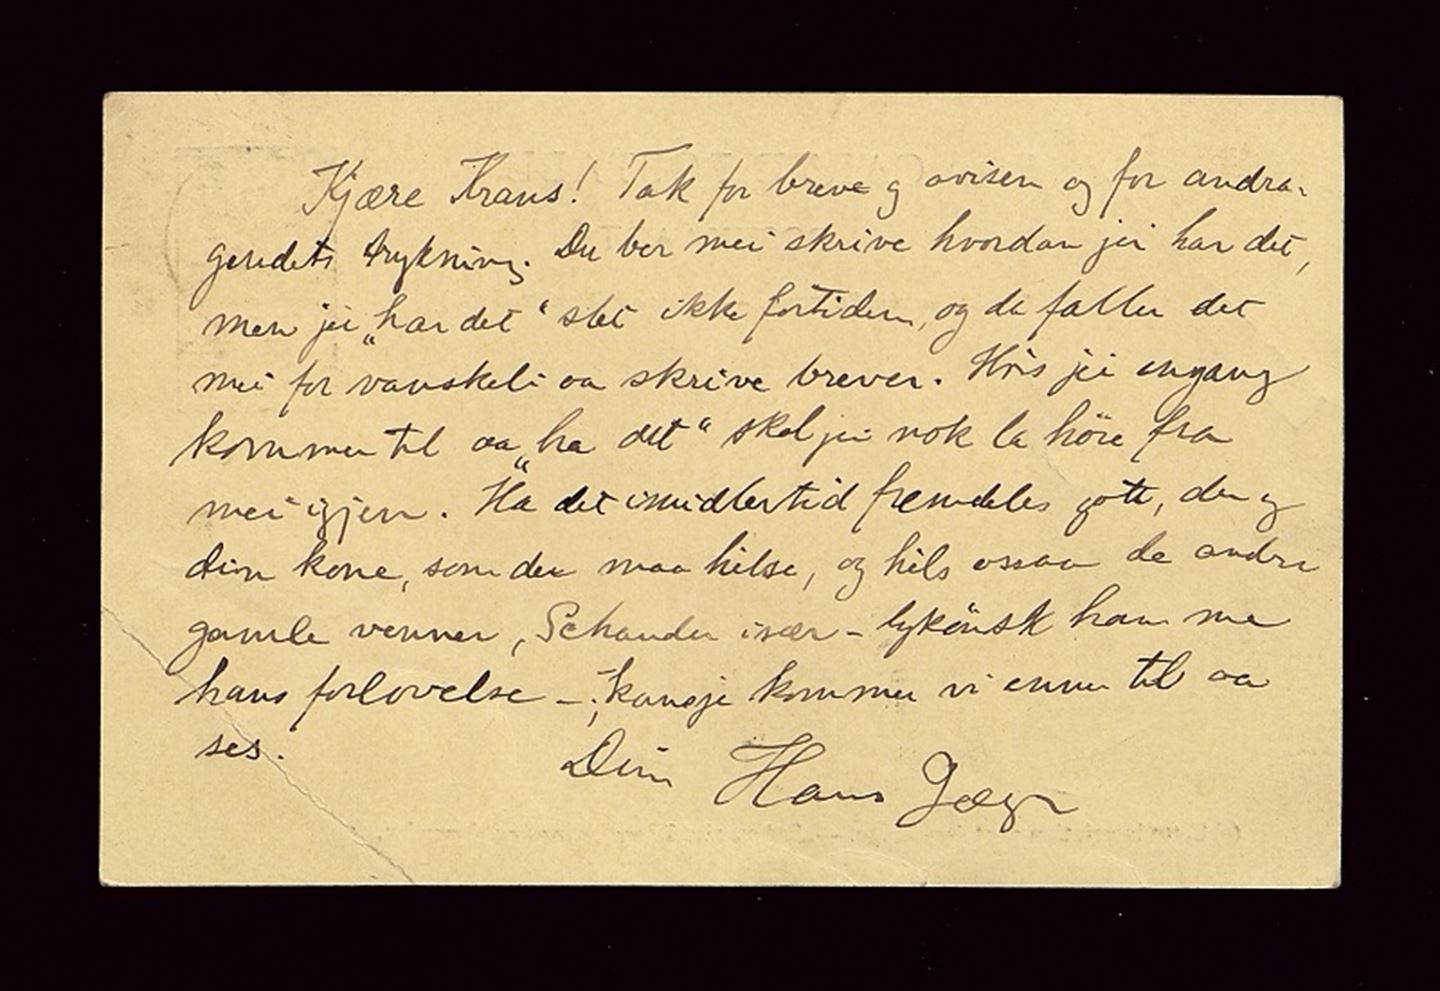 Kjære Kraus! Tak for breve og avisen og for andra-
geredets trykning. Du ber mei skrive hvordan jei har det,
men jei „har det“ slet ikke fortiden, og da faller det
mei for vanskeli aa skrive brever. Hvis jei engang
kommer til aa „ha det“ skal jei nok la høre fra
mei igjen. Ha det imidlertid fremdeles gott, du og
din kone, som du maa hilse, og hils ossaa de andre
gamle venner, Schander især – lykönsk ham me
hans forlovelse –; kansje kommer vi ennu til aa
ses.
Din Hans Jæger